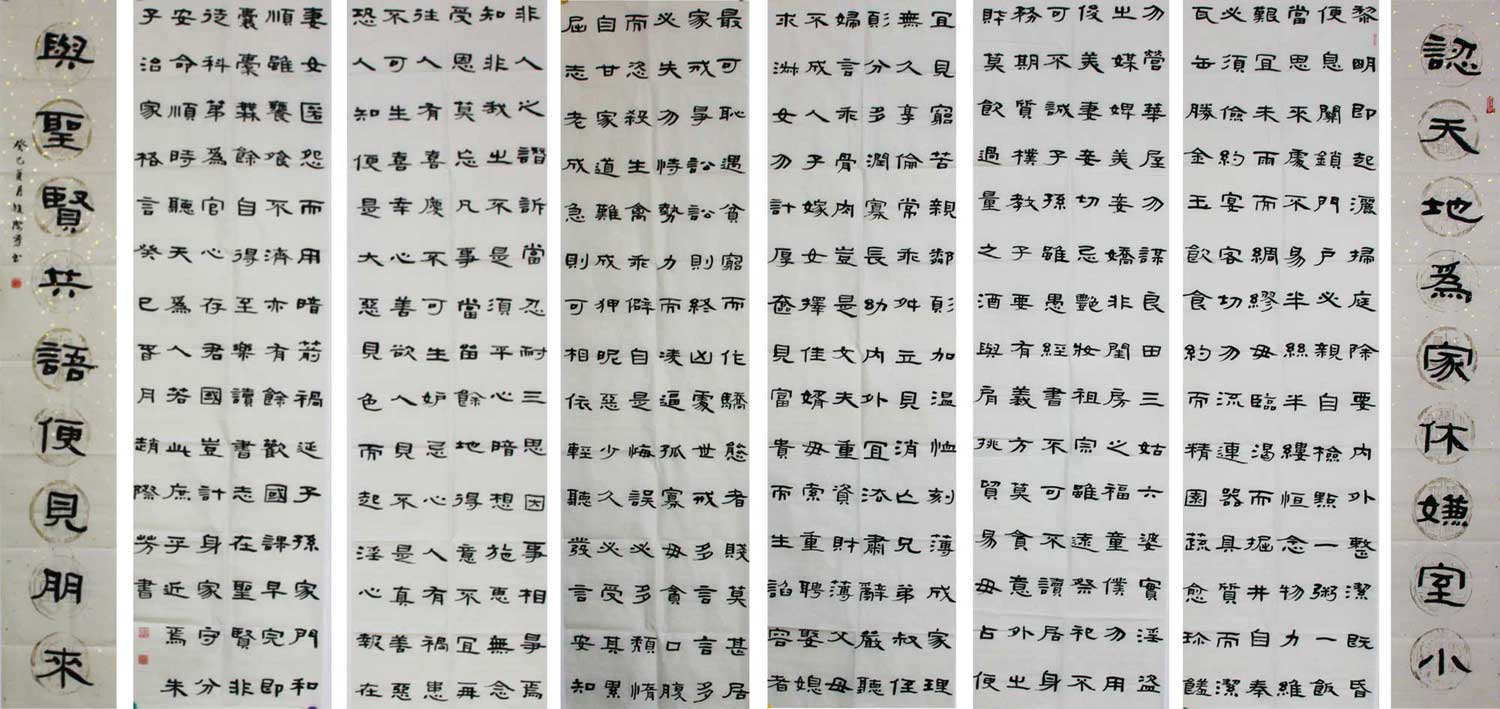 認天地為家休嫌室小
黎明即起灑掃庭除要內外整潔既昏
便息關鎖門戶必親自檢點一粥一飯
當思來處不易半絲半縷恒念物力維
艱宜未雨而綢繆毋臨渴而掘井自奉
必須儉約宴客切勿流連器具質而潔
瓦缶勝金玉飲食約而精園蔬愈珍饈
勿營華屋勿謀良田三姑六婆實淫盜
之媒婢美妾嬌非閨房之福童僕勿用
俊美妻妾切忌艷妝祖宗雖遠祭祀不
可不誠子孫雖愚經書不可不讀居身
務期質樸教子要有義方莫貪意外之
財莫飲過量之酒與肩挑貿易毋占便
宜見窮苦親鄰須加溫恤刻薄成家理
無久享倫常乖舛立見消亡兄弟叔侄
須分多潤寡長幼內外宜法肅辭嚴聽
婦言乖骨肉豈是丈夫重資財薄父母
不成人子嫁女擇佳婿毋索重聘娶媳
求淑女勿計厚奩見富貴而生諂容者
最可恥遇貧窮而作驕態者賤莫甚居
家戒爭訟訟則終凶處世戒多言言多
必失勿恃勢力而凌逼孤寡毋貪口腹
而恣殺生禽乖僻自是悔誤必多頹惰
自甘家道難成狎昵惡少久必受其累
屈志老成急則可相依輕聽發言安知
非人之譖訴當忍耐三思因事相爭焉
知非我之不是須平心暗想施惠無念
受恩莫忘凡事當留餘地得意不宜再
往人有喜慶不可生妒忌心人有禍患
不可生喜幸心善欲人見不是真善惡
恐人知便是大惡見色而起淫心報在
妻女匿怨而用暗箭禍延子孫家門和
順雖饔飧不濟亦有餘歡國課早完即
囊橐無餘自得至樂讀書志在聖賢非
徒科第為官心存君國豈計身家守分
安命順時聽天為人若此庶乎近焉朱
子治家格言癸巳晉月趙際芳書
與聖賢共語便見朋來
癸巳夏月趙際芳書